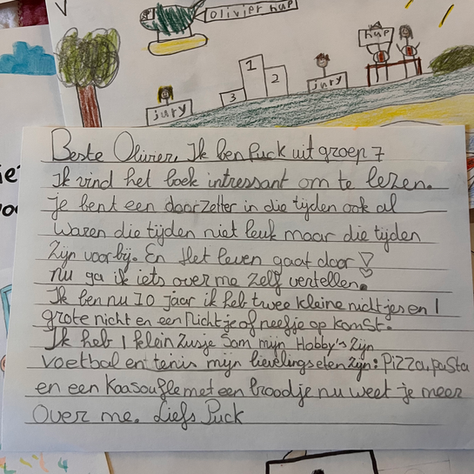 olivier hup
hup
1
2
3
jury
jury
Beste Olivier, Ik ben Puck uit groep 7
Ik vind het boek intressant om te lezen.
je bent een doorzetter in die tijden ook al
waren die tijden niet leuk maar die tijden
zijn voorbij. En Het leven gaat door!
nu ga ik iets over me zelf vertellen.
Ik ben nu 10 jaar ik heb twee kleine nichtjes en 1
grote nicht en een Nichtje of neefje op komst.
Ik heb 1 klein zusje Sam mijn Hobby's zijn
voetbal en tenis mijn lievelingseten zijn: Pizza, pasta
en een kaasoufle met een broodje nu weet je meer
over me. Liefs Puck